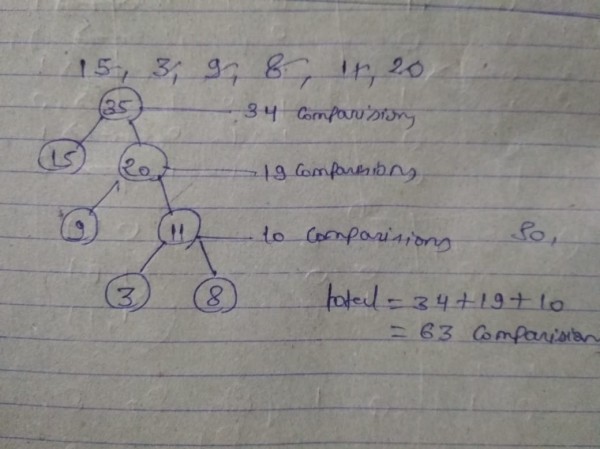 15, 3, 9, 8, 11, 20
35 34 comparisions
15 20 19 comparisions
9 11 10 comparisions So,
3 8 total = 34+19+10
= 63 comparision